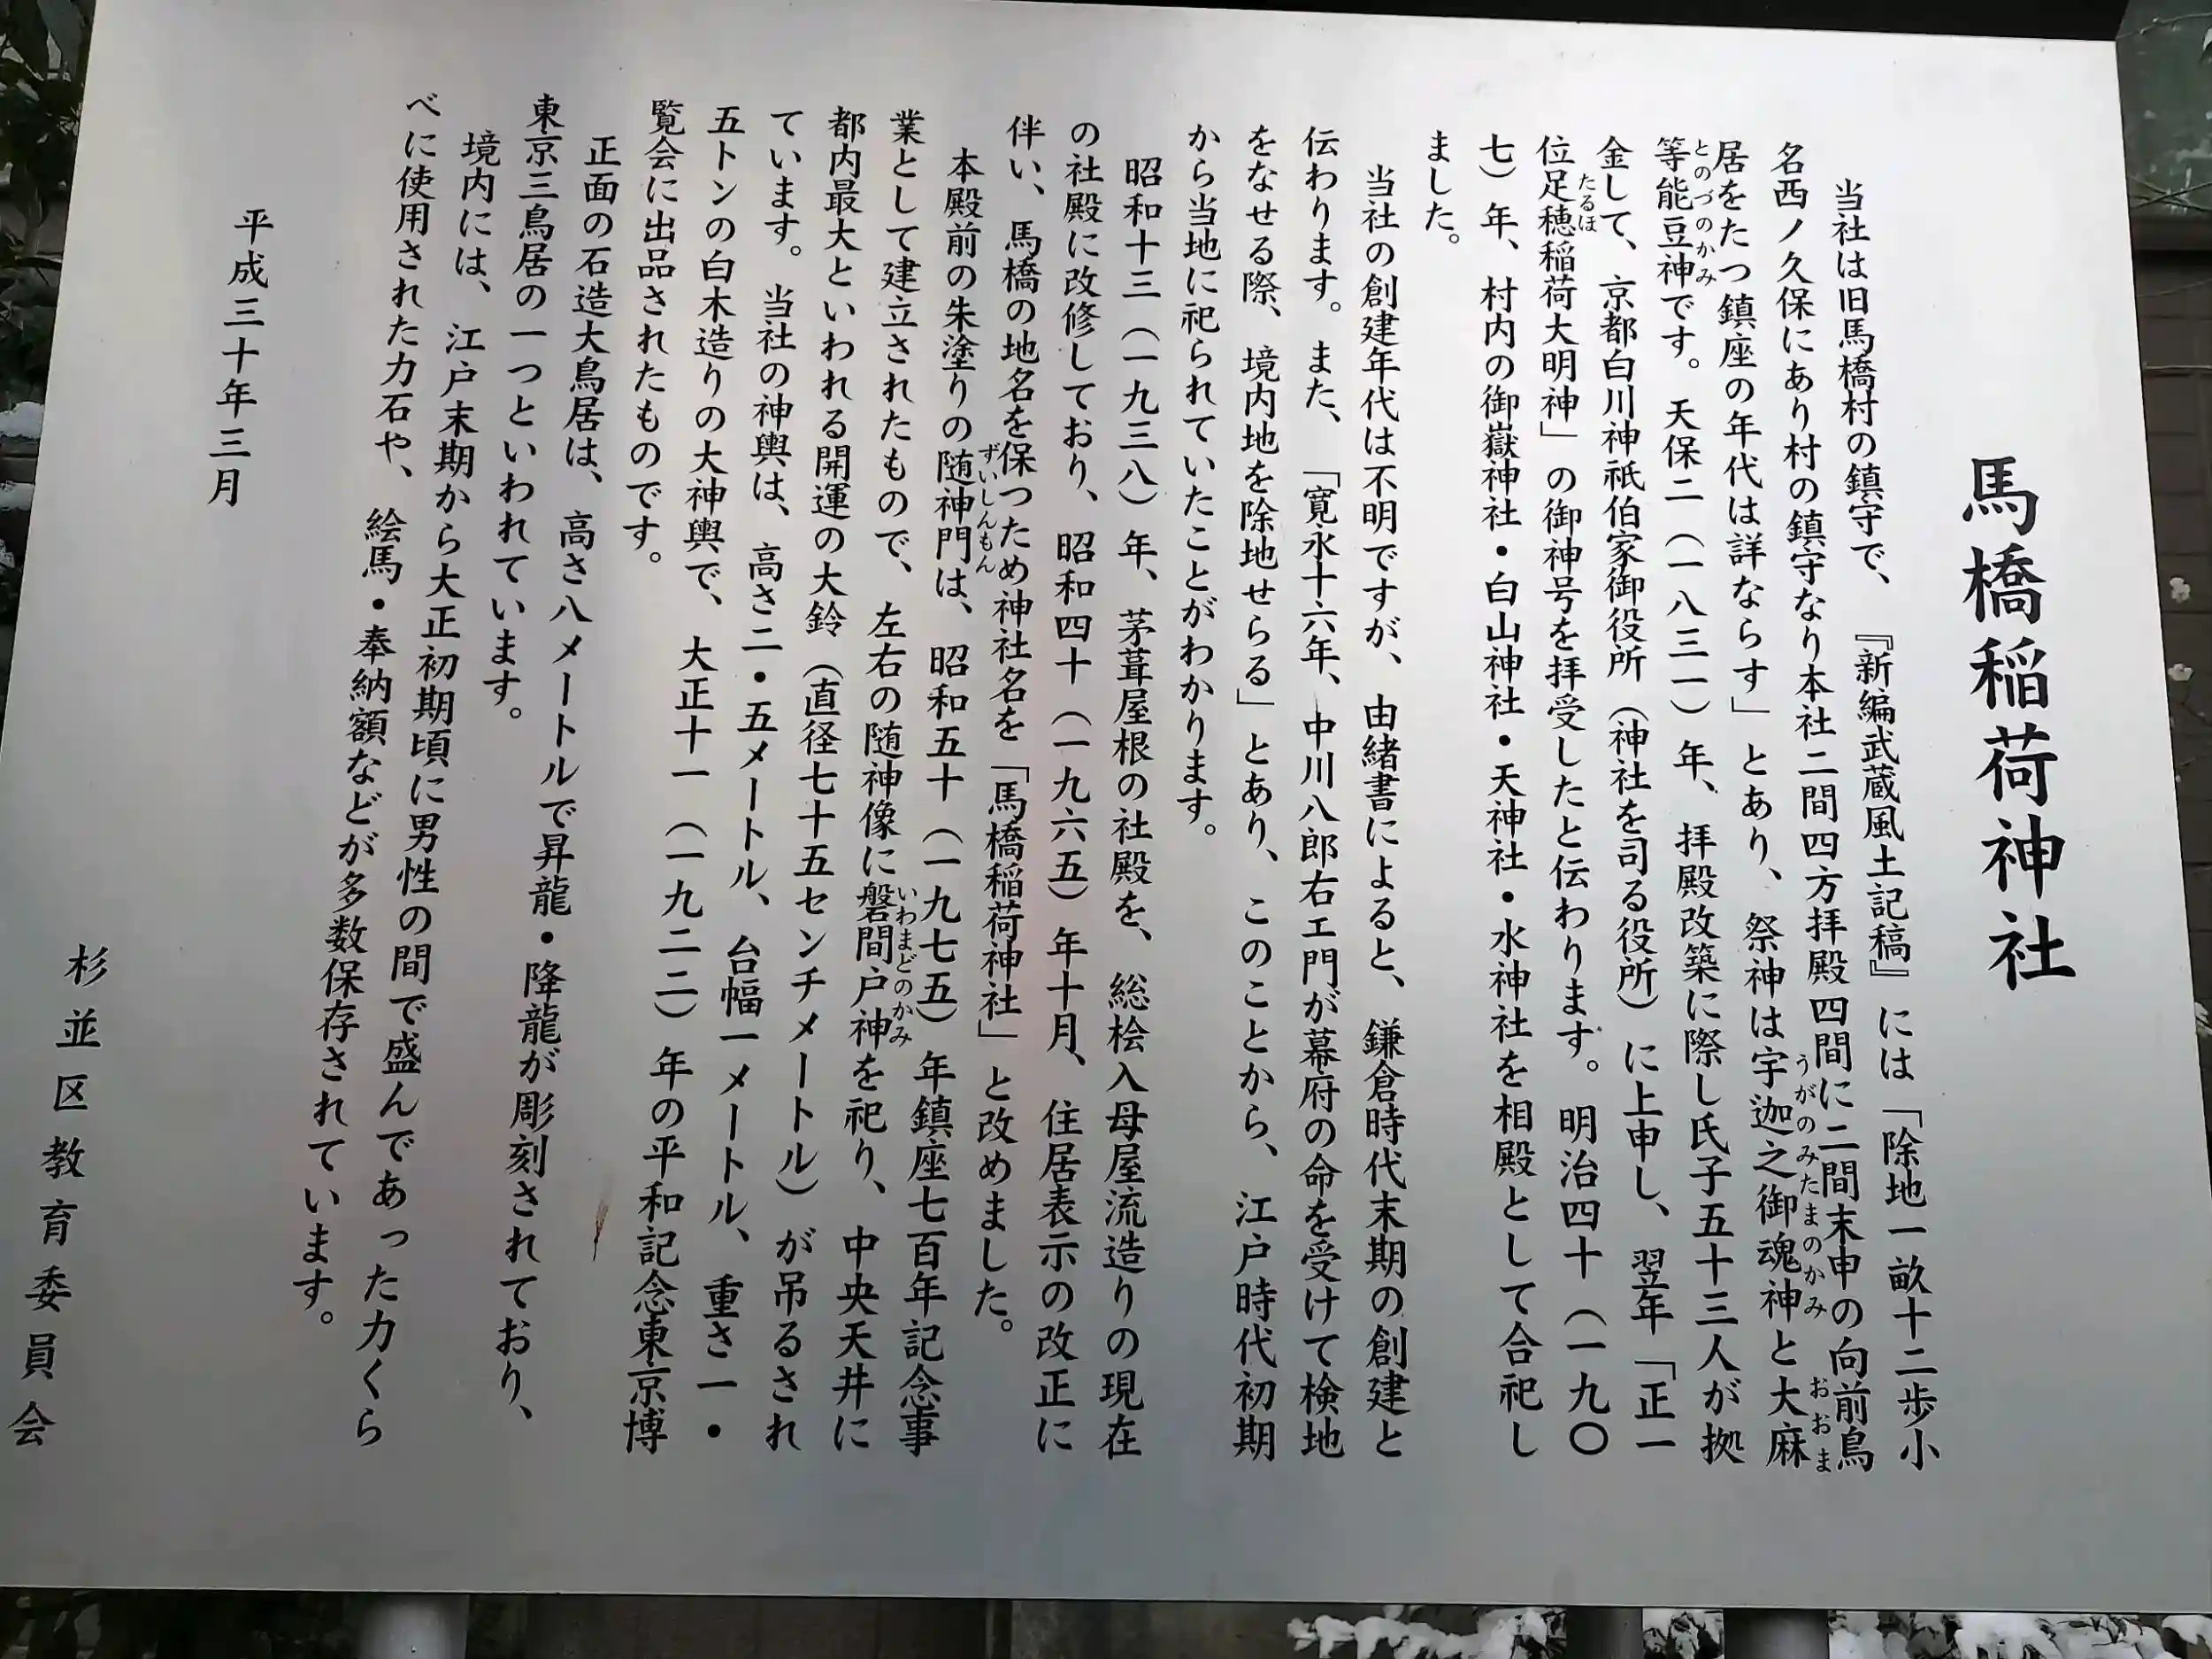 馬橋稲荷神社
当社は旧馬橋村の鎮守で、『新編武蔵風土記稿』には「除地一畝十二歩小
名西ノ久保にあり村の鎮守なり本社二間四方拝殿四間に二間末申の向前鳥
居をたつ鎮座の年代は詳ならす」とあり、祭神は宇迦之御魂神と大麻
うがのみたまのかみ
おおま
等能豆神です。天保二（一八三一）年、拝殿改築に際し氏子五十三人が拠
とのづのかみ
金して、京都白川神祇伯家御役所（神社を司る役所）に上申し、翌年「正一
位足穂稲荷大明神」の御神号を拝受したと伝わります。明治四十（一九〇
たるほ
七）年、村内の御嶽神社・白山神社・天神社・水神社を相殿として合祀し
ました。
当社の創建年代は不明ですが、由緒書によると、鎌倉時代末期の創建と
伝わります。また、「寛永十六年、中川八郎右エ門が幕府の命を受けて検地
をなせる際、境内地を除地せらる」とあり、このことから、江戸時代初期
から当地に祀られていたことがわかります。
昭和十三（一九三八）年、茅葺屋根の社殿を、総桧入母屋流造りの現在
の社殿に改修しており、昭和四十（一九六五）年十月、住居表示の改正に
伴い、馬橋の地名を保つため神社名を「馬橋稲荷神社」と改めました。
本殿前の朱塗りの随神門は、昭和五十（一九七五）年鎮座七百年記念事
ずいしんもん
業として建立されたもので、左右の随神像に磐間戸神を祀り、中央天井に
いわまどのかみ
都内最大といわれる開運の大鈴（直径七十五センチメートル）が吊るされ
ています。当社の神輿は、高さ二・五メートル、台幅一メートル、重さ一・
五トンの白木造りの大神輿で、大正十一（一九二二）年の平和記念東京博
覧会に出品されたものです。
正面の石造大鳥居は、高さ八メートルで昇龍・降龍が彫刻されており、
東京三鳥居の一つといわれています。
境内には、江戸末期から大正初期頃に男性の間で盛んであった力くら
べに使用された力石や、絵馬・奉納額などが多数保存されています。
平成三十年三月
杉並区教育委員会